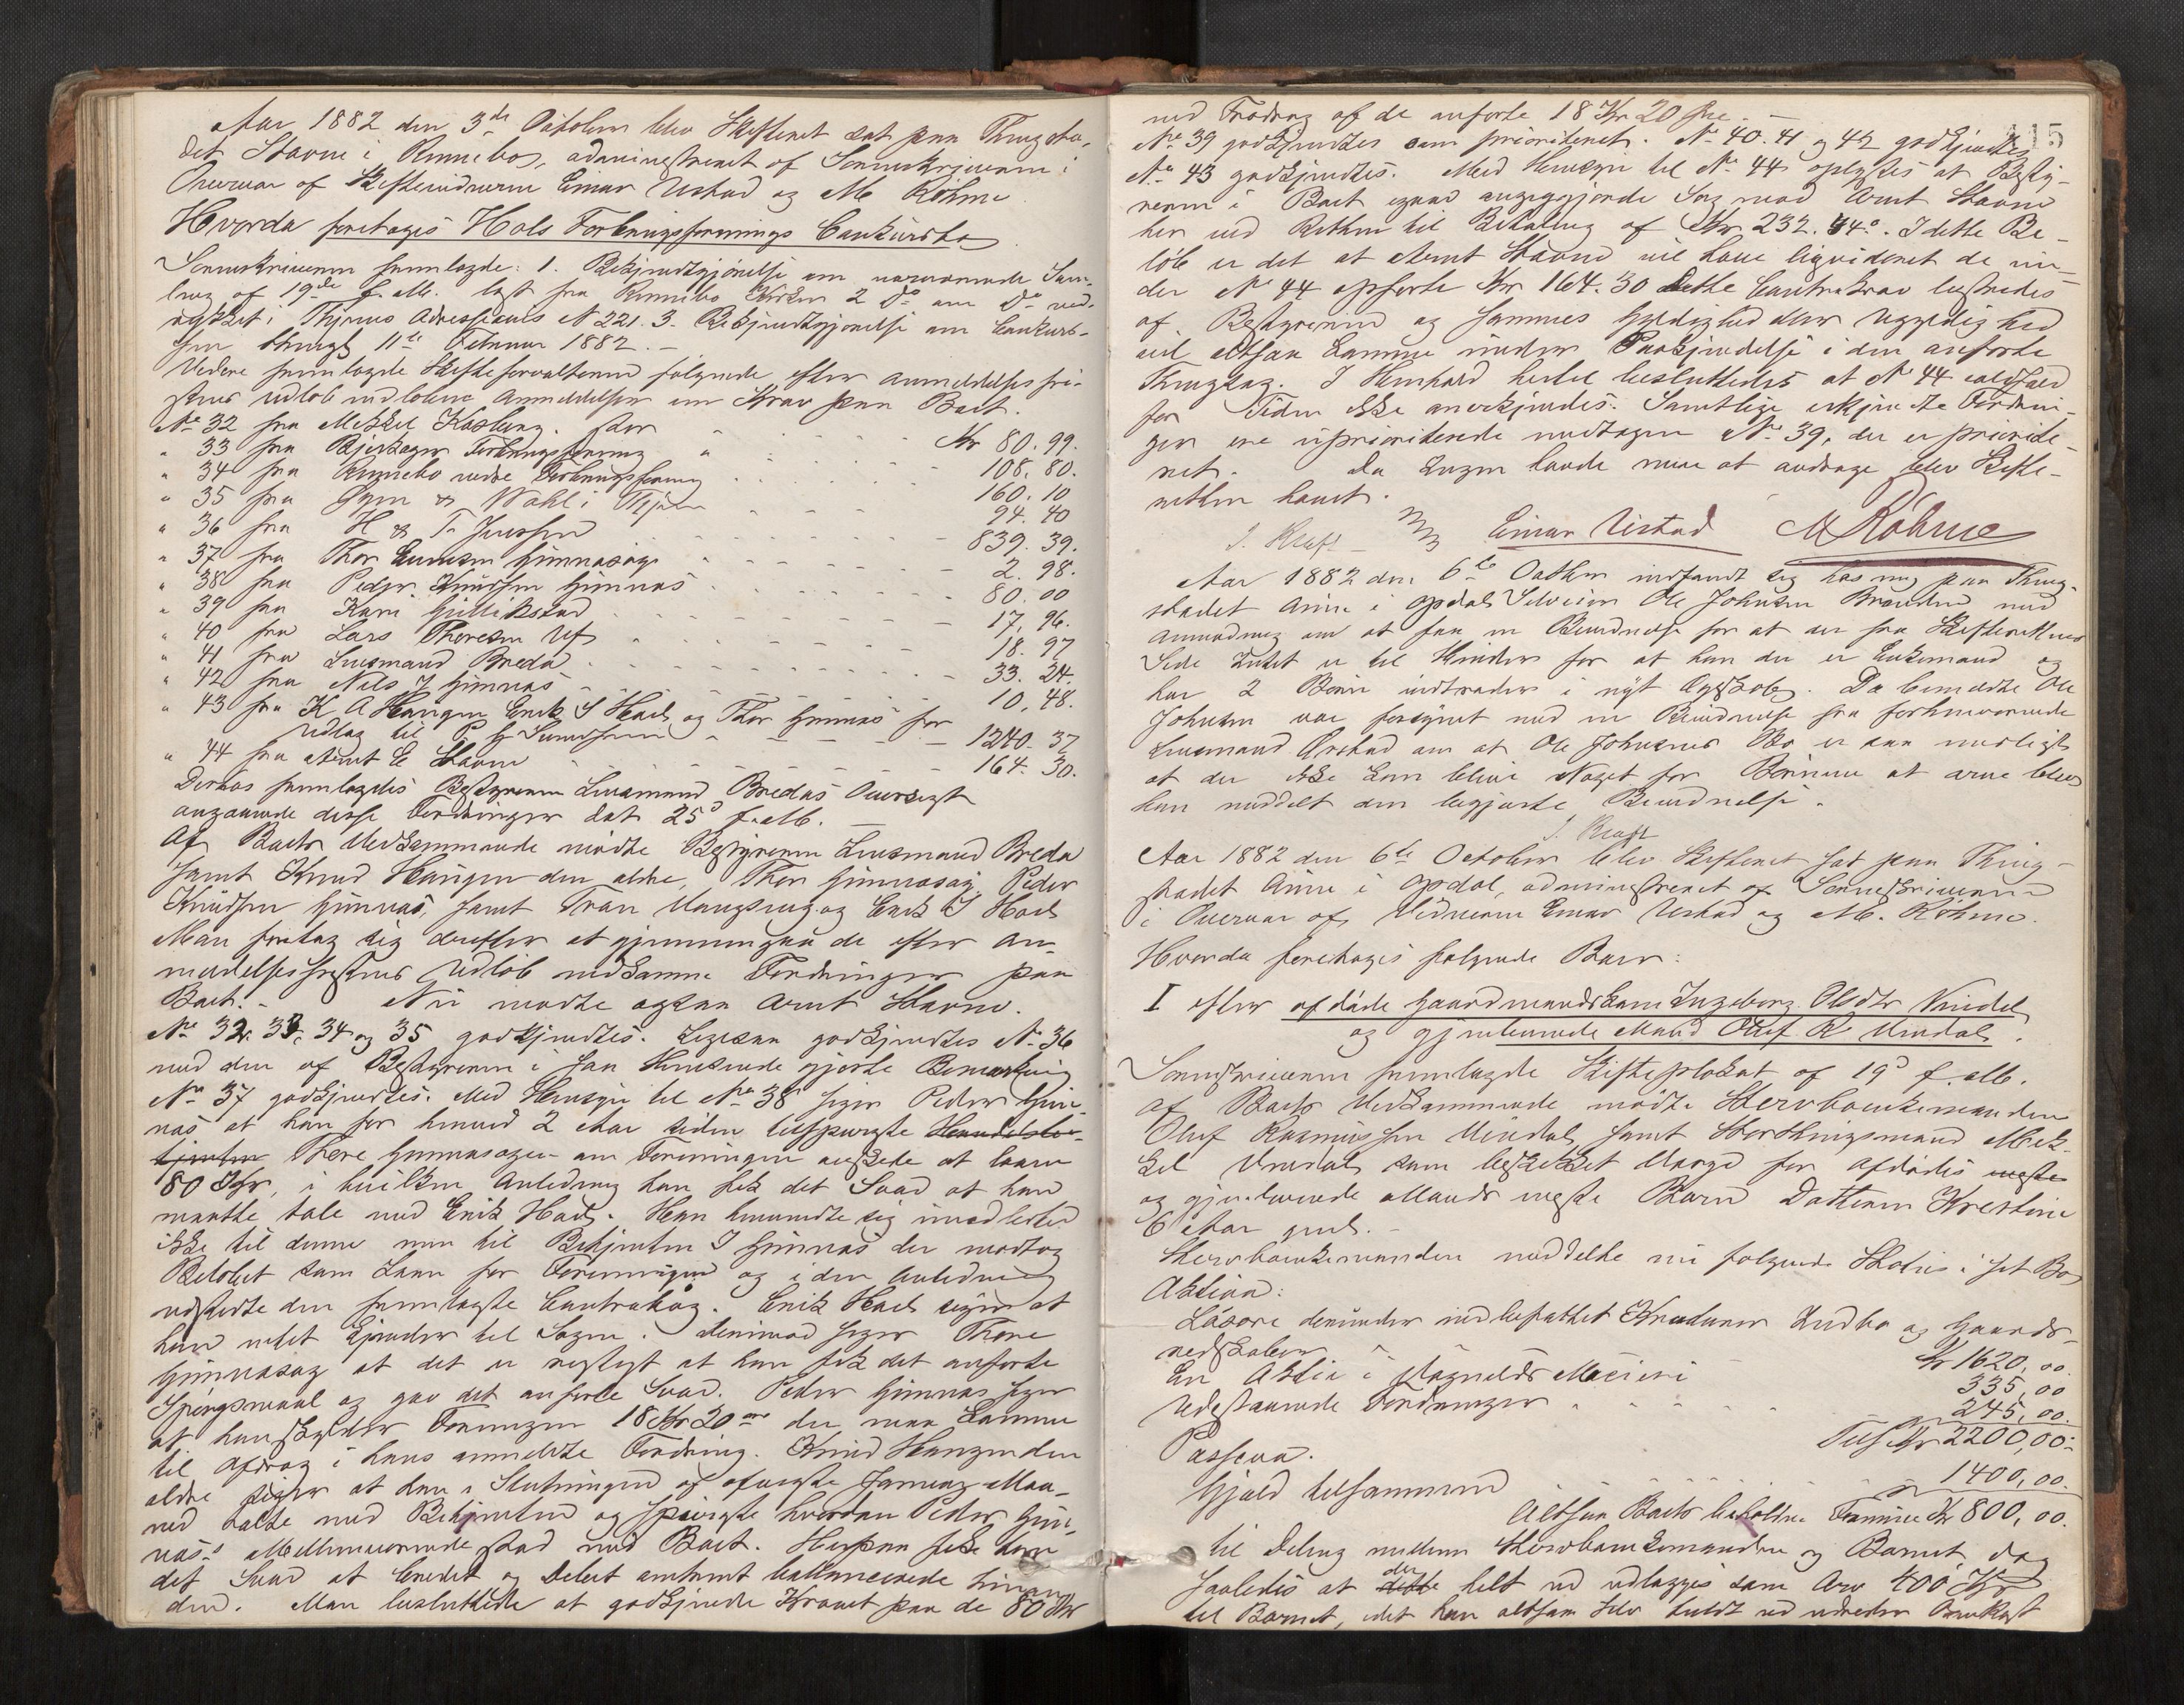 Aar 1882 den 3de October blev Skifteret sat paa Thingste-
det Stavne i Rennebo, administreret af Sorenskriveren i
Overvær af Skiftevidnerne Einar Ustad og M Röhme
Hvorda foretoges Hols Forbrugsforenings Conkursbo
Sorenskriveren fremlagde: 1. Bekjendtgjörelse om nærværende Sam-
ling af 19de f. M. læst fra Rennebo Kirke 2 Do om Do ind-
rykket i Thjems Adresseavis N 221. 3. Bekjendtgjörelse om Conkurs-
11te Februar 1882. -
Videre fremlagde Skifteforvalteren følgende efter Anmeldelsesfri-
stens Udløb indløbne Anmeldelser om Krav paa Boet.
No 32 fra Mekkel Kosberg. stor Kr 80. 99.
" 33 fra Bjerkager Forbrugsforening " 108. 80.
" 34 fra Rennebo nedre Forbrugsforening 160. 10
" 35 fra & Wahl i Thjem 94. 40
" 36 fra H & T. Jenssen 839. 39.
" 37 fra Thore Gunnesøg 2. 98.
" 38 fra Peder Knudsen Gunnes 80. 00
" 39 fra Kari Gullikstad 17, 96.
" 40 fra Lars Thoresen Uf 18. 97
" 41 fra Lensmand Breda 33. 24.
" 42 fra Nils J Gunnes 10, 48.
" 43 fra K A Haugen Erik S Hoel og Thor Gunnes for
Udlæg til P 1240. 37
" 44 fra Arnt E Stavne 164. 30.
Derhos fremlagdes Bestyreren Lensmand Bredas Oversigt
angaaende disse Fordringer dat 25d f. M. -
Af Boets Vedkommende mødte Bestyreren Lensmand Breda
samt Knud Haugen den ældre, Thor Gunnesøg, Peder
Knudsen Gunnes, samt Tron og Erik S Hoel
Man foretog sig derefter at gjennemgaa de efter An-
meldelsesfristens Udløb indkomne Fordringer paa
Boet. - Nu mødte ogsaa Arnt Stavne.
No 32. 33, 34 og 35 godkjendtes. Ligesaa godkjendtes No 36
med den af Bestyreren i saa Henseende gjorte Bemærkning
No 37 godkjendtes. Med Hensyn til No 38 siger Peder Gun-
nes at han for henved 2 Aar siden tilspurgte Handelsbe-
tjenten Thore Gunnesøgen om Foreningen ønskede at laane
80 Kr, i hvilken Anledning han fik det Svar at han
maatte tale med Erik Hoel. Han henvendte sig imidlertid
ikke til denne men til Betjenten J Gunnes der modtog
Beløbet som Laan for Foreningen og i den Anledning
udstedte den fremlagte Contrabog. Erik Hoel siger at
han intet kjender til Sagen. Derimod siger Thore
Gunnesøg at det er rigtigt at han fik det anførte
Spørgsmaal og gav det anførte Svar. Peder Gunnes siger
at han skylder Foreningen 18 Kr 20 øre der maa komme
til Afdrag i hans anmeldte Fordring. Knud Haugen den
ældre siger at han i Slutningen af afvigte Januar Maa-
ned talte med Betjenten og spurgte hvordan Peder Gun-
nes's Mellemværende stod med Boet. Herpaa fik han
det Svar at Credit og Debet omtrent ballancerede hinan-
den. Man besluttede at godkjende Kravet paa de 80 Kr
med Fradrag af de anførte 18 Kr 20 Øre. -
No 39 godkjendtes som prioriteret. No 40. 41 og 42 godkjendtes
No 43 godkjendtes. Med Hensyn til No 44 oplystes at Besty-
reren i Boet anlæggjorde Sag mod Arnt Stavne
her ved Retten til Betaling af Kr 232. 44o. I dette Be-
løb er det at Arnt Stavne vil have liqvideret de un-
der No 44 opførte Kr 164. 30 Dette Contrakrav bestredes
af Bestyreren og sammes Gyldighed eller Ugyldighed
vil altsaa komme under Paakjendelse i den anførte
Thingsag. I Henhold hertil besluttedes at No 44 ialfald
for Tiden ikke anerkjendes. Samtlige erkjendte Fordrin-
ger ere uprioriterede undtagen No 39, der er priorite-
ret. Da Ingen havde mere at andrage blev Skifte-
retten hævet.
J. Kraft Einar Ustad M Röhme
Aar 1882 den 6te Octbr indfandt sig hos mig paa Thing-
stedet Aune i Opdal Selveier Ole Johnsen med
Anmodning om at faa en Bevidnelse for at der fra Skifterettens
Side Intet er til Hinder for at han der er Enkemand og
har 2 Børn indtræder i nyt Ægteskab. Da bemeldte Ole
Johnsen var forsynet med en Bevidnelse fra forhenværende
Lensmand om at Ole Johnsens Bo er saa
at der ikke kan blive Noget for Børnene at arve blev
han meddelt den begjærte Bevidnelse.
J. Kraft
Aar 1882 den 6te October blev Skifteret sat paa Thing-
stedet Aune i Opdal, administreret af Sorenskriveren
i Overvær af Vidnerne Einar Ustad og M. Röhme.
Hvorda foretoges følgende Boer:
I efter afdøde Gaardmandskone Ingeborg Olsdtr Vindal
og gjenlevende Mand Oluf R Vindal.
Sorenskriveren fremlagde Skifteplakat af 19d f. M.
Af Boets Vedkommende mødte Stervboenkemanden
Oluf Rasmussen Vindal samt Storthingsmand Mek-
kel Vindal som beskikket Værge for Afdødes meste
og gjenlevende Mands ægte Barn Datteren Kristine
6 Aar gml. -
Stervboenkemanden meddelte nu følgende Status i sit Bo
Aktiva:
Løsøre derunder indbefattet Kreaturer Indbo og Gaards-
redskaber Kr 1620,00
En Aktie i Meieri 335,00
Udestaaende Fordringer 245,00.
Tils Kr 2200,00.
Passiva.
Gjæld tilsammen 1400,00.
Altsaa Boets beholdne Formue Kr 800,00.
til Deling mellem Stervboenkemanden og Barnet, dog
saaledes at dette der helt ud udlægges som Arv 400 Kr
til Barnet, idet han altsaa selv fuldt ud udreder
115